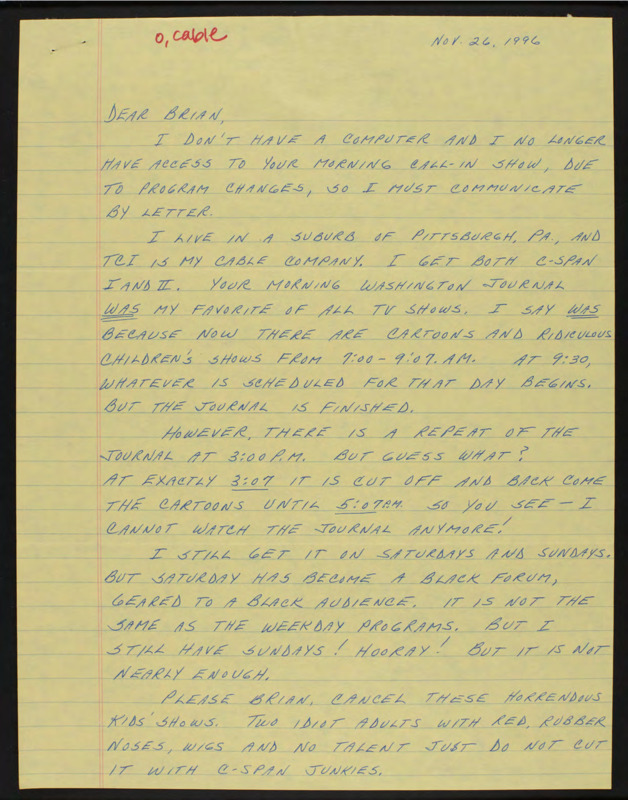 o, cable
NOV. 26, 1996
DEAR BRIAN,
I DON'T HAVE A COMPUTER AND I NO LONGER
HAVE ACCESS TO YOUR MORNING CALL-IN SHOW, DUE
TO PROGRAM CHANGES, SO I MUST COMMUNICATE
BY LETTER.
I LIVE IN A SUBURB OF PITTSBURGH, PA., AND
TCI IS MY CABLE COMPANY. I GET BOTH C-SPAN
I AND II. YOUR MORNING WASHINGTON JOURNAL
WAS MY FAVORITE OF ALL TV SHOWS. I SAY WAS
BECAUSE NOW THERE ARE CARTOONS AND RIDICULOUS
CHILDREN'S SHOWS FROM 7:00 - 9:07. AM. AT 9:30,
WHATEVER IS SCHEDULED FOR THAT DAY BEGINS.
BUT THE JOURNAL IS FINISHED.
HOWEVER, THERE IS A REPEAT OF THE
JOURNAL AT 3:00 P.M. BUT GUESS WHAT?
AT EXACTLY 3:07 IT IS CUT OFF AND BACK COME
THE CARTOONS UNTIL 5:07 P.M. SO YOU SEE - I
CANNOT WATCH THE JOURNAL ANYMORE!
I STILL GET IT ON SATURDAYS AND SUNDAYS.
BUT SATURDAY HAS BECOME A BLACK FORUM,
GEARED TO A BLACK AUDIENCE. IT IS NOT THE
SAME AS THE WEEKDAY PROGRAMS. BUT I
STILL HAVE SUNDAYS! HOORAY! BUT IT IS NOT
NEARLY ENOUGH.
PLEASE BRIAN, CANCEL THESE HORRENDOUS
KIDS' SHOWS. TWO IDIOT ADULTS WITH RED, RUBBER
NOSES, WIGS AND NO TALENT JUST DO NOT CUT
IT WITH C-SPAN JUNKIES.